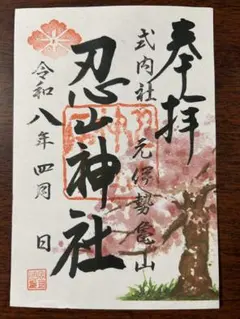 奉拝
式内社 元伊勢亀山
忍山神社
令和八年 四月 日